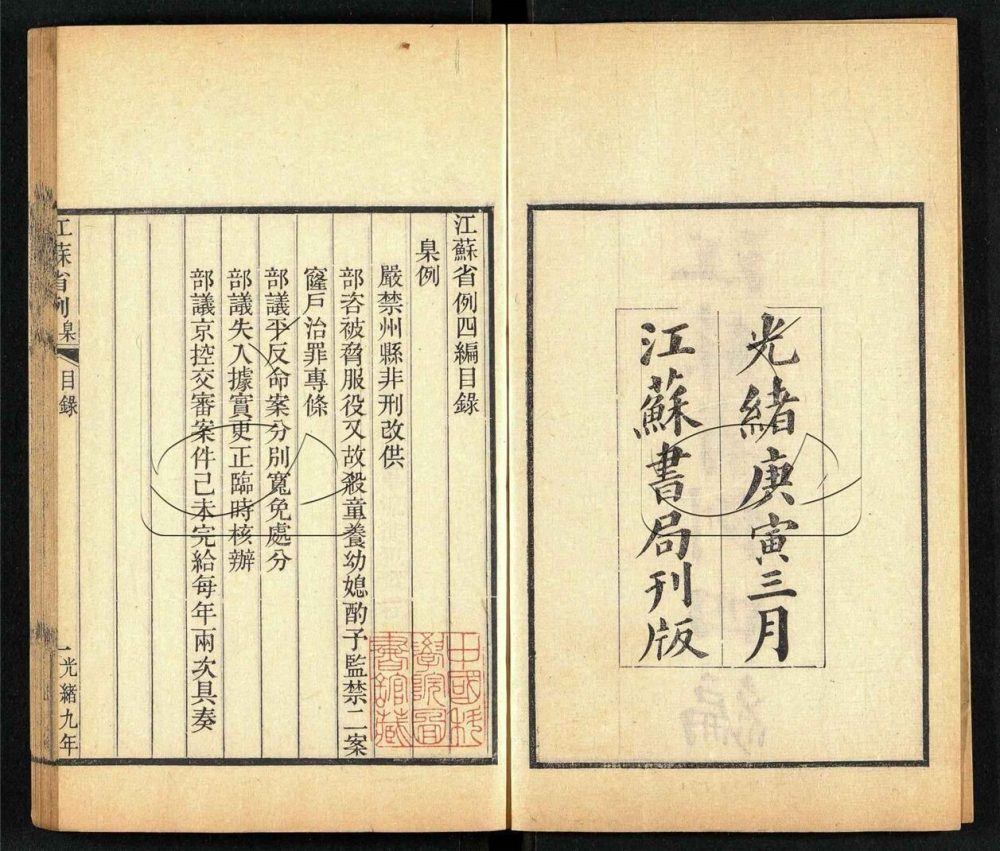 光緒庚寅三月
江蘇書局刊版
江蘇省例四編目錄
臬例
嚴禁州縣非刑改供
部咨被脅服役又故殺童養幼媳酌予監禁二案
窿戶治罪專條
部議平反命案分別寬免處分
部議失入據實更正臨時核辦
部議京控交審案件已未完結每年兩次具奏
江蘇省例 臬 目錄 一 光緒九年
中國科
學院圖
書館藏